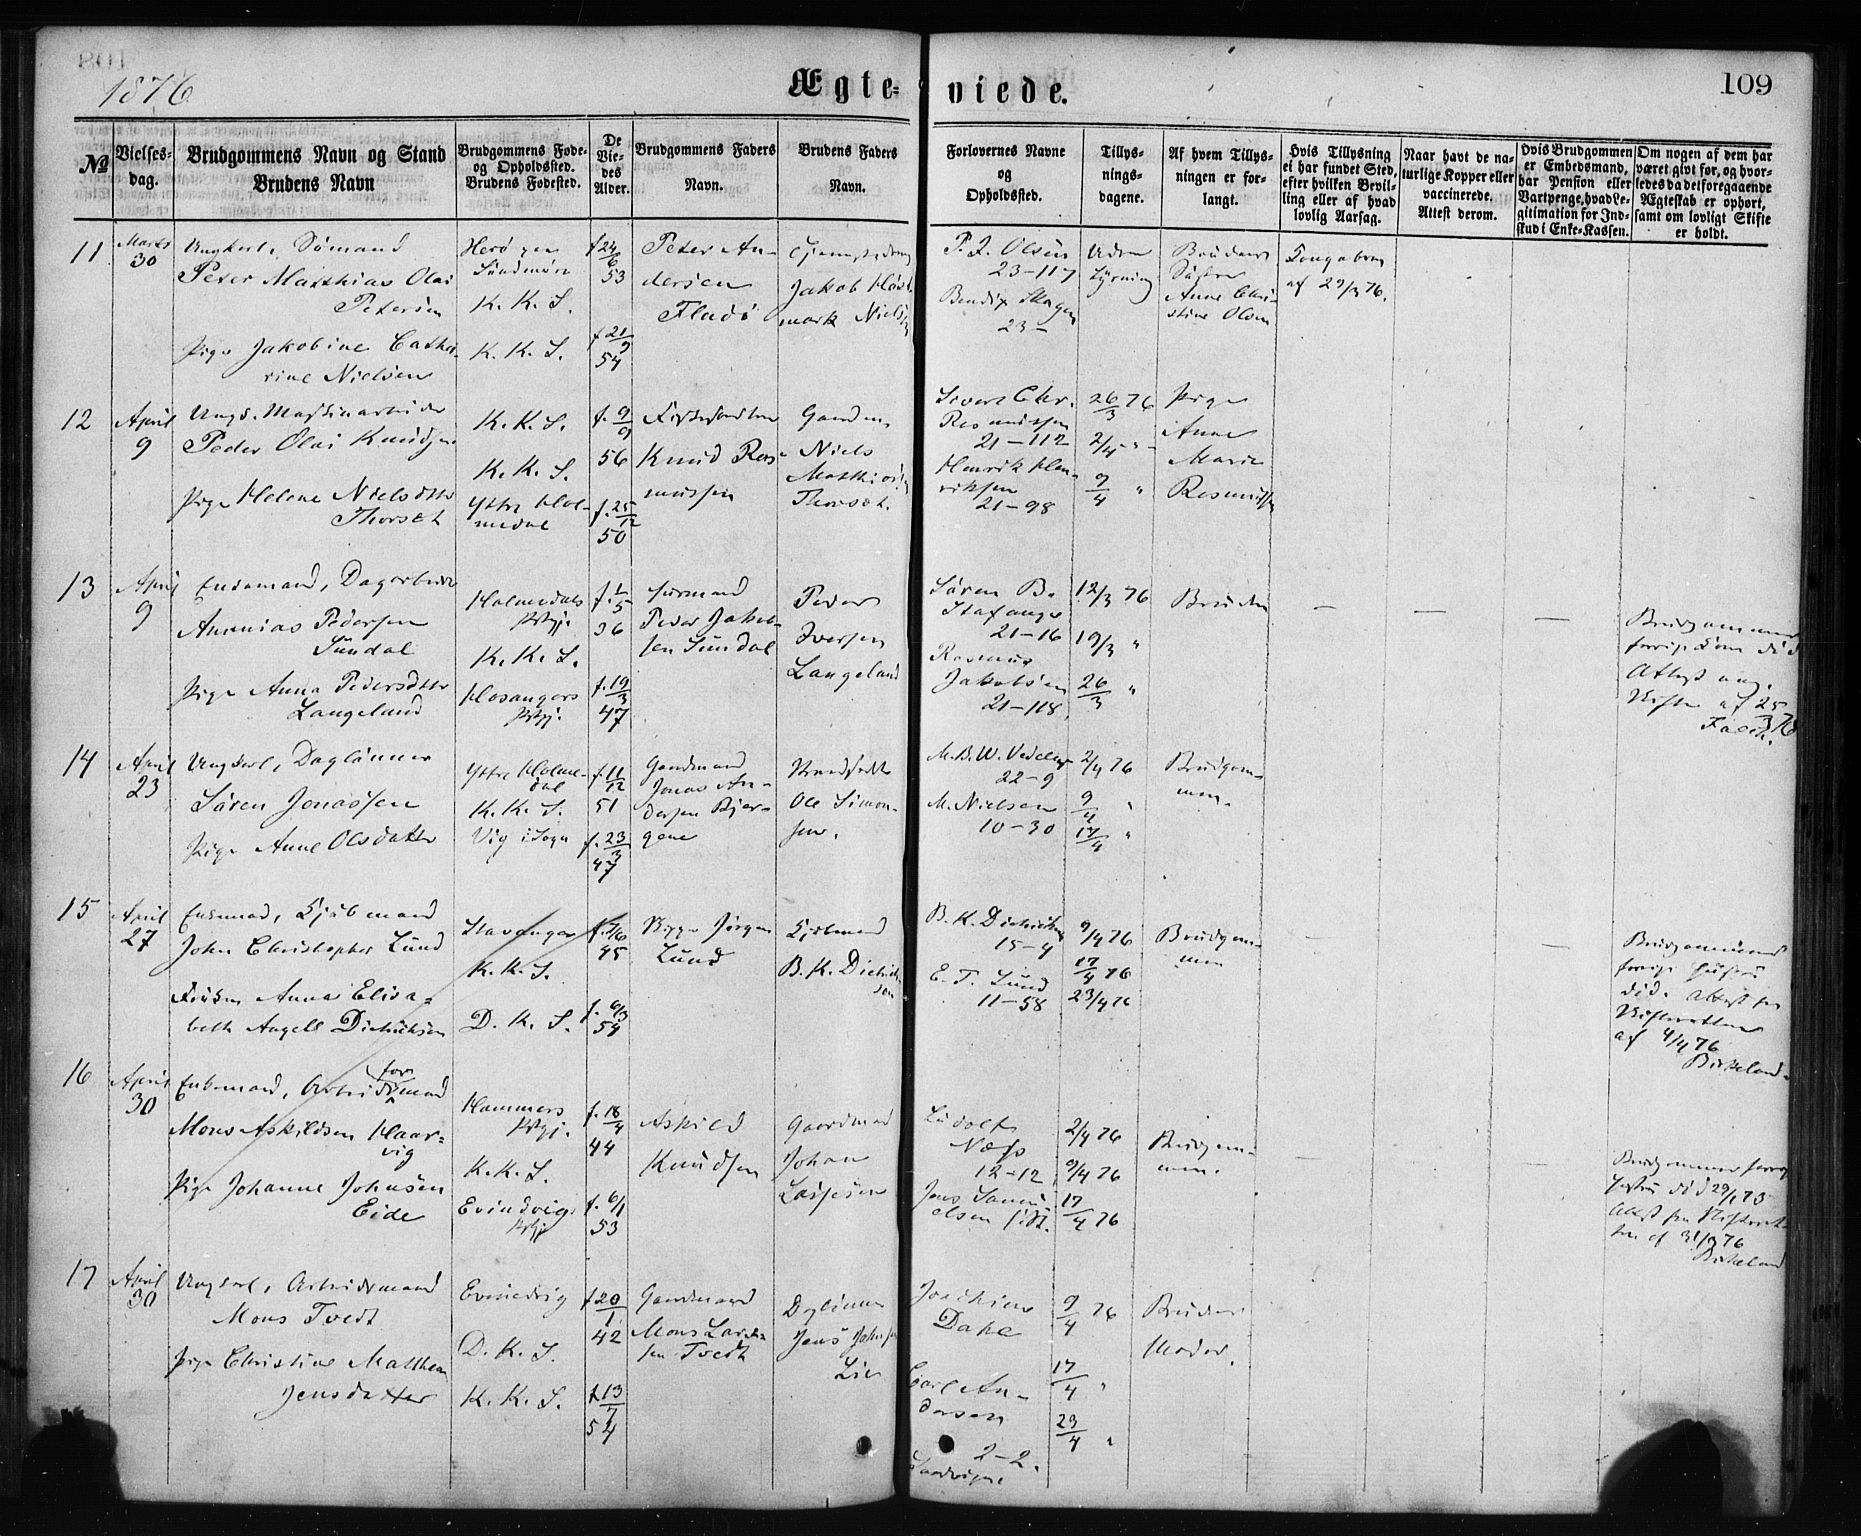 1876.
Ægte-
viede.
109
№
Vielses-
dag.
Brudgommens Navn og Stand
Brudens Navn
Brudgommens Føde-
og Opholdssted.
Brudens Fødested.
De
Vie-
des
Alder.
Brudgommens Faders
Navn.
Brudens Faders
Navn.
Forlovernes Navne
og
Opholdssted.
Tillys-
nings-
dagene.
Af hvem Tillys-
ningen er for-
langt.
Hvis Tillysning
ei har fundet Sted,
efter hvilken Bevil-
ling eller af hvad
lovlig Aarsag.
Naar havt de na-
turlige Kopper eller
vaccinerede.
Attest derom.
Hvis Brudgommen
er Embedsmand,
har Pension eller
Vartpenge, hvad Le-
gitimation for Ind-
skud i Enke-Kassen.
Om nogen af dem har
været givt før, og hvor-
ledes da det foregaaende
Ægteskab er ophørt,
samt om lovligt Skifte
er holdt.
11
Marts
30
Ungkarl, Sømand
Peter Matthias Olai
Petersen
Pige Jakobine Catha-
rine Nielsen
Herø
Søndmøre
K. K. S.
K. K. S.
f 24/6
53
f 21/9
54
Peter An-
dersen
Fladø
Jakob
mark Nielsen
P. J. Olsen
23-117
Bendix Skagen
23-
Uden
Lysning
Brudens
Søster
Anne Chri-
stine Olsen
af 29/3 76.
12
April
9
Ungk. Maskinarbeider
Peder Olai Knudsen
Pige Helene Nielsdtr
Thorset
K. K. S.
K. K. S.
Yttre Hol-
medal
f. 9/9
56
f. 25/12
50
Knud Ras-
mussen
Gaardm.
Niels
Matthias
Thorset.
Sivert Chr.
Rasmussen
21-112
Henrik Hen-
riksen
21-98
26/3 76
2/4 "
9/4 "
Pige
Anne
Marie
Rasmussen
13
April
9
Enkemand, Dagarbeider
Ananias Pedersen
Sundal
Pige Anna Pedersdtr
Langeland
Holmedals
Prstgj.
K. K. S.
Hosangers
Prstgj.
f. 1/5
36
f. 19/3
47
Peder Jakob-
sen Sundal
Peder
Iversen
Langeland
Søren B.
Stafanger
21-16
Rasmus
Jakobsen
21-118.
12/3 76
19/3 "
26/3 "
Bruden
Brudgommens
forrige Kone død
Attest ang.
Skifte af 25
3 76
Falch.
14
April
23
Ungkarl, Daglønner
Søren Jonassen
Pige Anne Olsdatter
Yttre Holme-
dal
K. K. S.
Vig i Sogn
f. 11/12
51
f. 23/3
47
Gaardmand
Jonas An-
dersen Bjer-
gene
Ole Simon-
sen.
M. B. W. Vedeler
22-9
M. Nielsen
10-30
2/4 76
9/4 "
17/4 "
Brudgom-
men.
15
April
27
Enkemand, Kjøbmand
John Christopher Lund
Frøken Anna Elisa-
beth Angell Dietrichson
Stavanger
K. K. S.
D. K. S.
45
f. 6/3
54
Jørgen
Lund
Kjøbmand
B. K. Dietrich-
son
B. K. Dietrichson
15-4
E. T. Lund
11-58
9/4 76
17/4 76
23/4 76
Brudgom-
men
Brudgommens
forrige Hustru
død. Attest fra
Skifteretten
af 4/4 76
Birkeland.
16
April
30
Enkemand, Arbeidsformand
Mons Askildsen Haar-
vig
Pige Johanne Johnsen
Eide
Hammers
Prstgj.
K. K. S.
Evindvigs
Prstgj
f. 18/4
44
f. 6/1
53
Askild
Knudsen
Gaardmand
Johan
Lassesen
Ludolf
Næss
12-12
Jens Samu-
elsen
2/4 76
9/4 76
17/4 76
Brudgom-
men.
Brudgommens forrige
Hustru død 29/1 73
Attest fra Skifteret-
ten af 31/3 76
Birkeland
17
April
30
Ungkarl, Arbeidsmand
Mons Tvedt
Pige Christine Matthea
Jensdatter
Evindvig
D. K. S.
K. K. S.
f 20/1
42
f 13/7
54
Gaardmand
Mons Lars-
sen Tvedt
Daglønner
Jens Johnsen
Lie
Joachim
Dahl
Carl An-
dersen
2-2.
Sandvigen
9/4 76
17/4 "
23/4 "
Brudens
Moder.